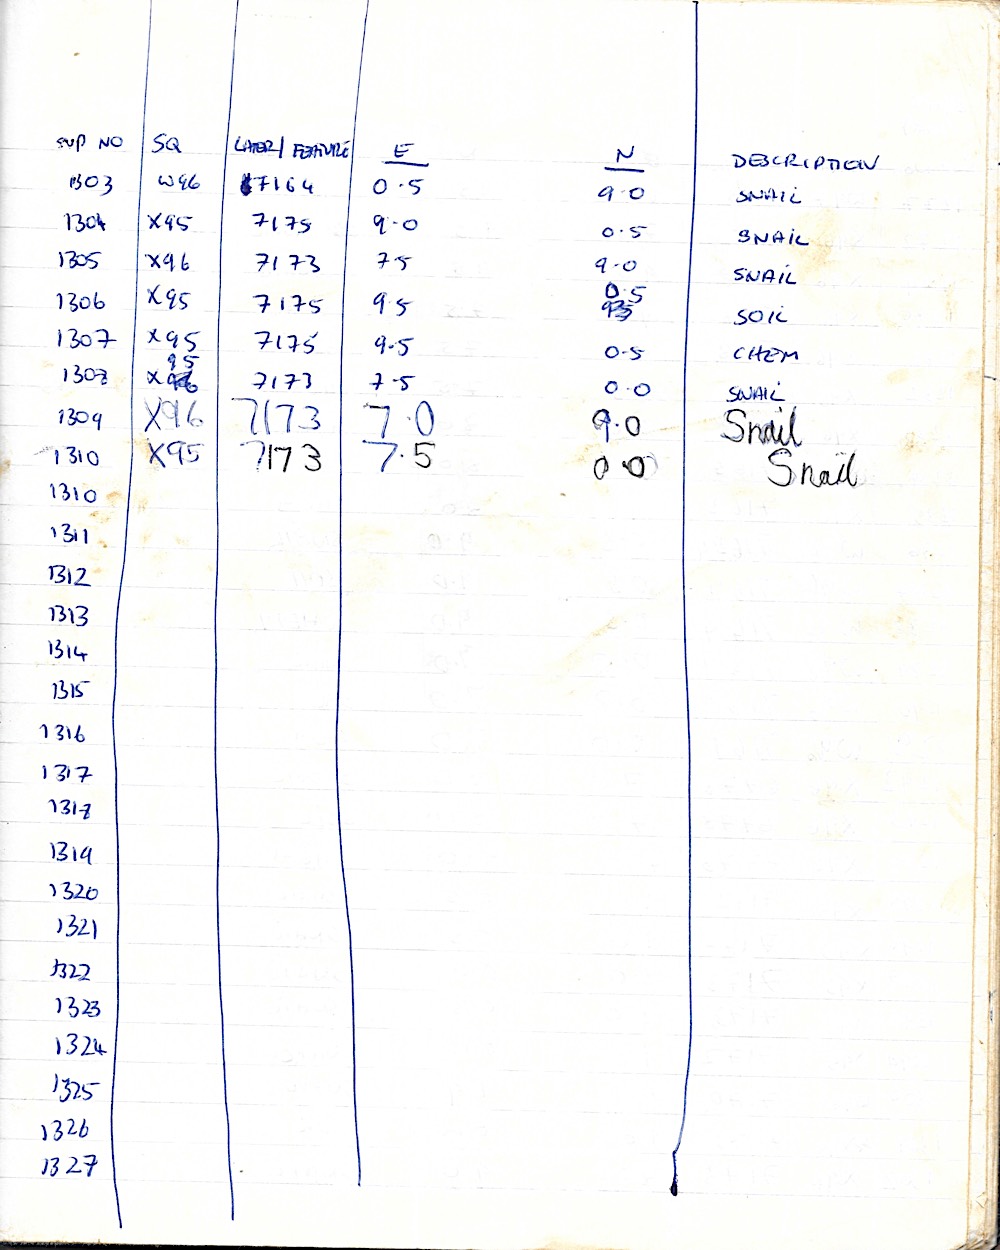 SUP NO SQ LAYER/FEATURE E N DESCRIPTION
1303 W96 7164 0.5 9.0 SNAIL
1304 X95 7175 9.0 0.5 SNAIL
1305 X96 7173 7.5 9.0 SNAIL
1306 X95 7175 9.5 0.5 SOIL
1307 X95 7175 9.5 0.5 CHEM
1308 X95 7173 7.5 0.0 SNAIL
1309 X96 7173 7.0 9.0 Snail
1310 X95 7173 7.5 0.0 Snail
1310
1311
1312
1313
1314
1315
1316
1317
1318
1319
1320
1321
1322
1323
1324
1325
1326
1327